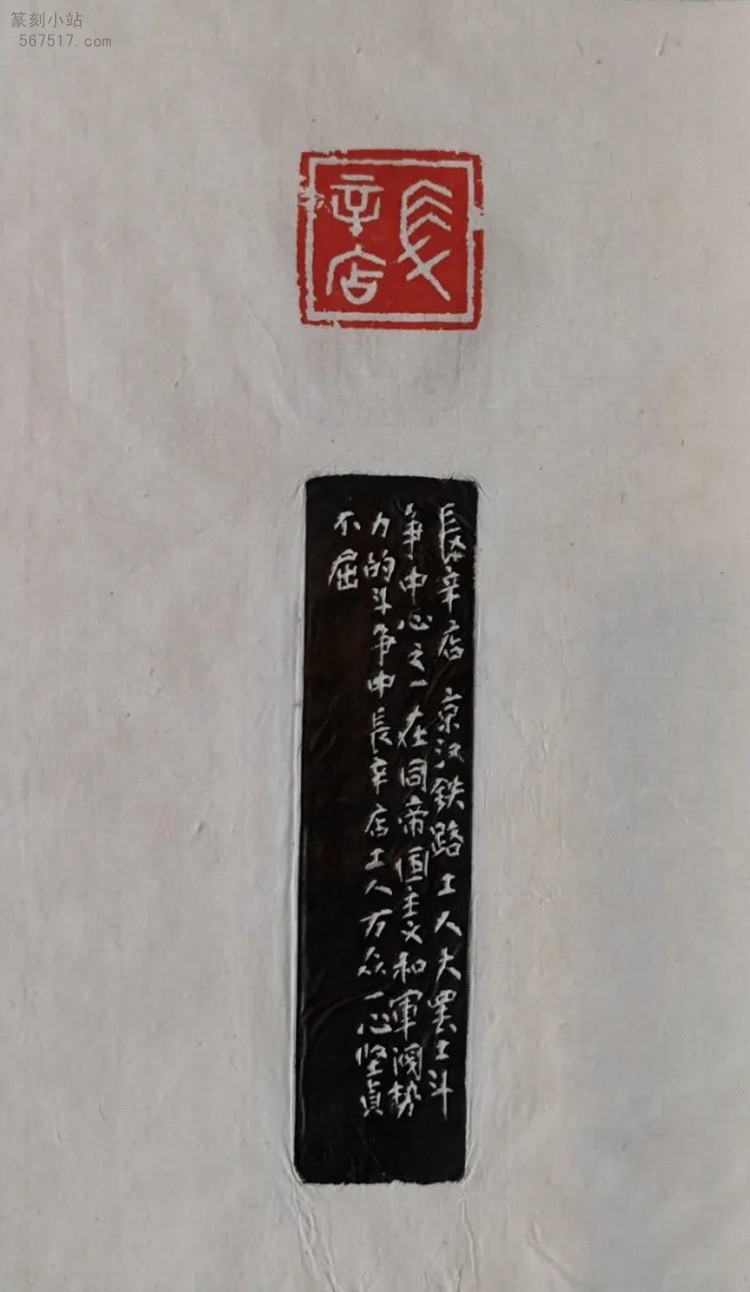 篆刻小站
567517.com
長
辛店
長辛店 京汉鉄路工人大罢工斗
争中心之一在同帝国主义和軍阀势
力的斗争中長辛店工人万众一心坚貞
不屈